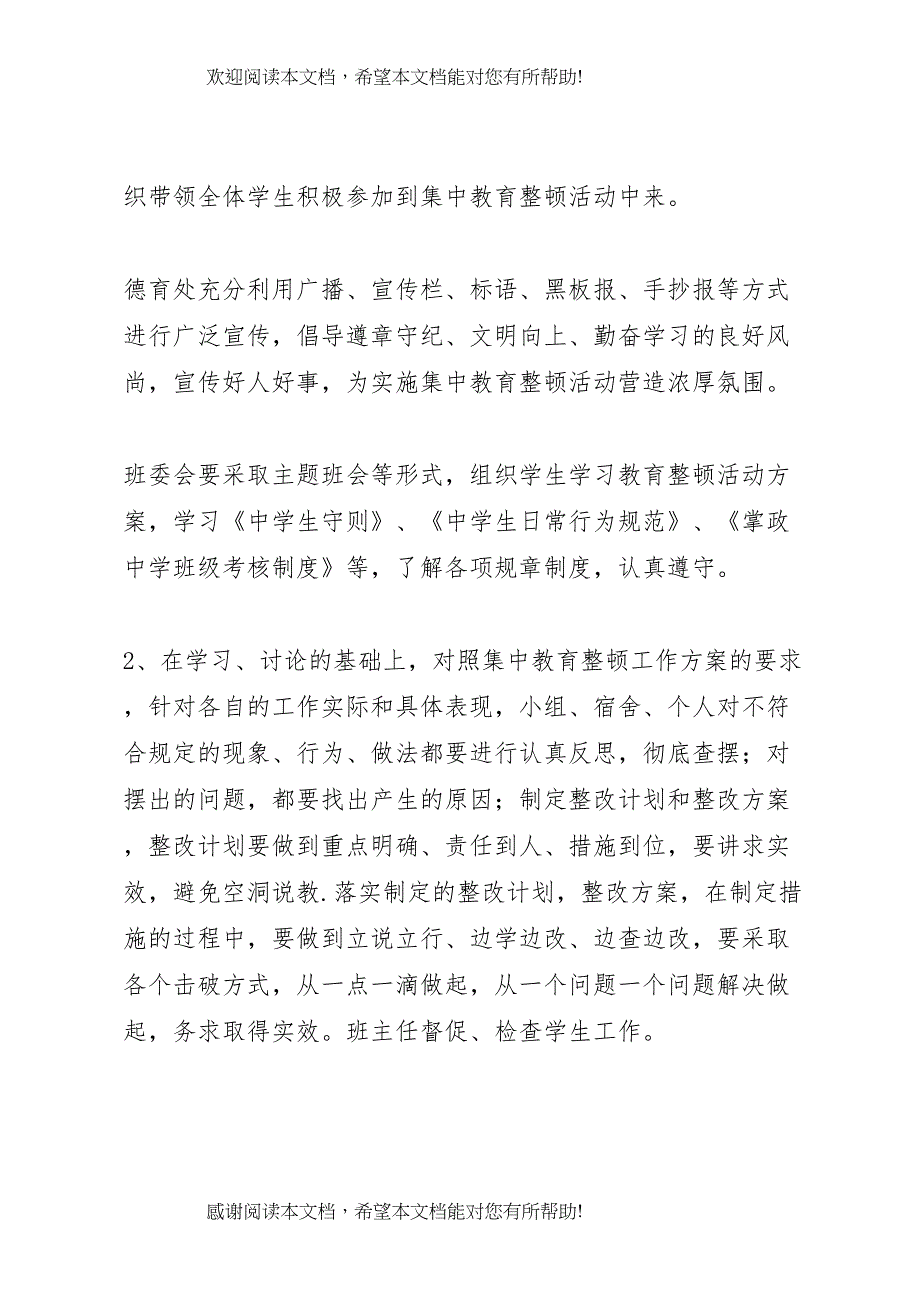 欢迎阅读本文档，希望本文档能对您有所帮助!
织带领全体学生积极参加到集中教育整顿活动中来。
德育处充分利用广播、宣传栏、标语、黑板报、手抄报等方式
进行广泛宣传，倡导遵章守纪、文明向上、勤奋学习的良好风
尚，宣传好人好事，为实施集中教育整顿活动营造浓厚氛围。
班委会要采取主题班会等形式，组织学生学习教育整顿活动方
案，学习《中学生守则》、《中学生日常行为规范》、《掌政
中学班级考核制度》等，了解各项规章制度，认真遵守。
2、在学习、讨论的基础上，对照集中教育整顿工作方案的要求
，针对各自的工作实际和具体表现，小组、宿舍、个人对不符
合规定的现象、行为、做法都要进行认真反思，彻底查摆；对
摆出的问题，都要找出产生的原因；制定整改计划和整改方案
，整改计划要做到重点明确、责任到人、措施到位，要讲求实
效，避免空洞说教.落实制定的整改计划，整改方案，在制定措
施的过程中，要做到立说立行、边学边改、边查边改，要采取
各个击破方式，从一点一滴做起，从一个问题一个问题解决做
起，务求取得实效。班主任督促、检查学生工作。
感谢阅读本文档，希望本文档能对您有所帮助!